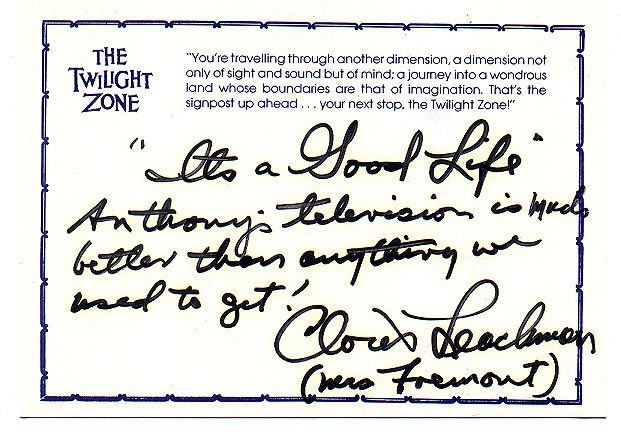 THE
TWILIGHT
ZONE
"You're travelling through another dimension, a dimension not
only of sight and sound but of mind; a journey into a wondrous
land whose boundaries are that of imagination. That's the
signpost up ahead . . . your next stop, the Twilight Zone!"
"Its a Good Life"
Anthony's television is much
better than anything we
used to get!
Cloris Leachman
(Mrs Fremont)